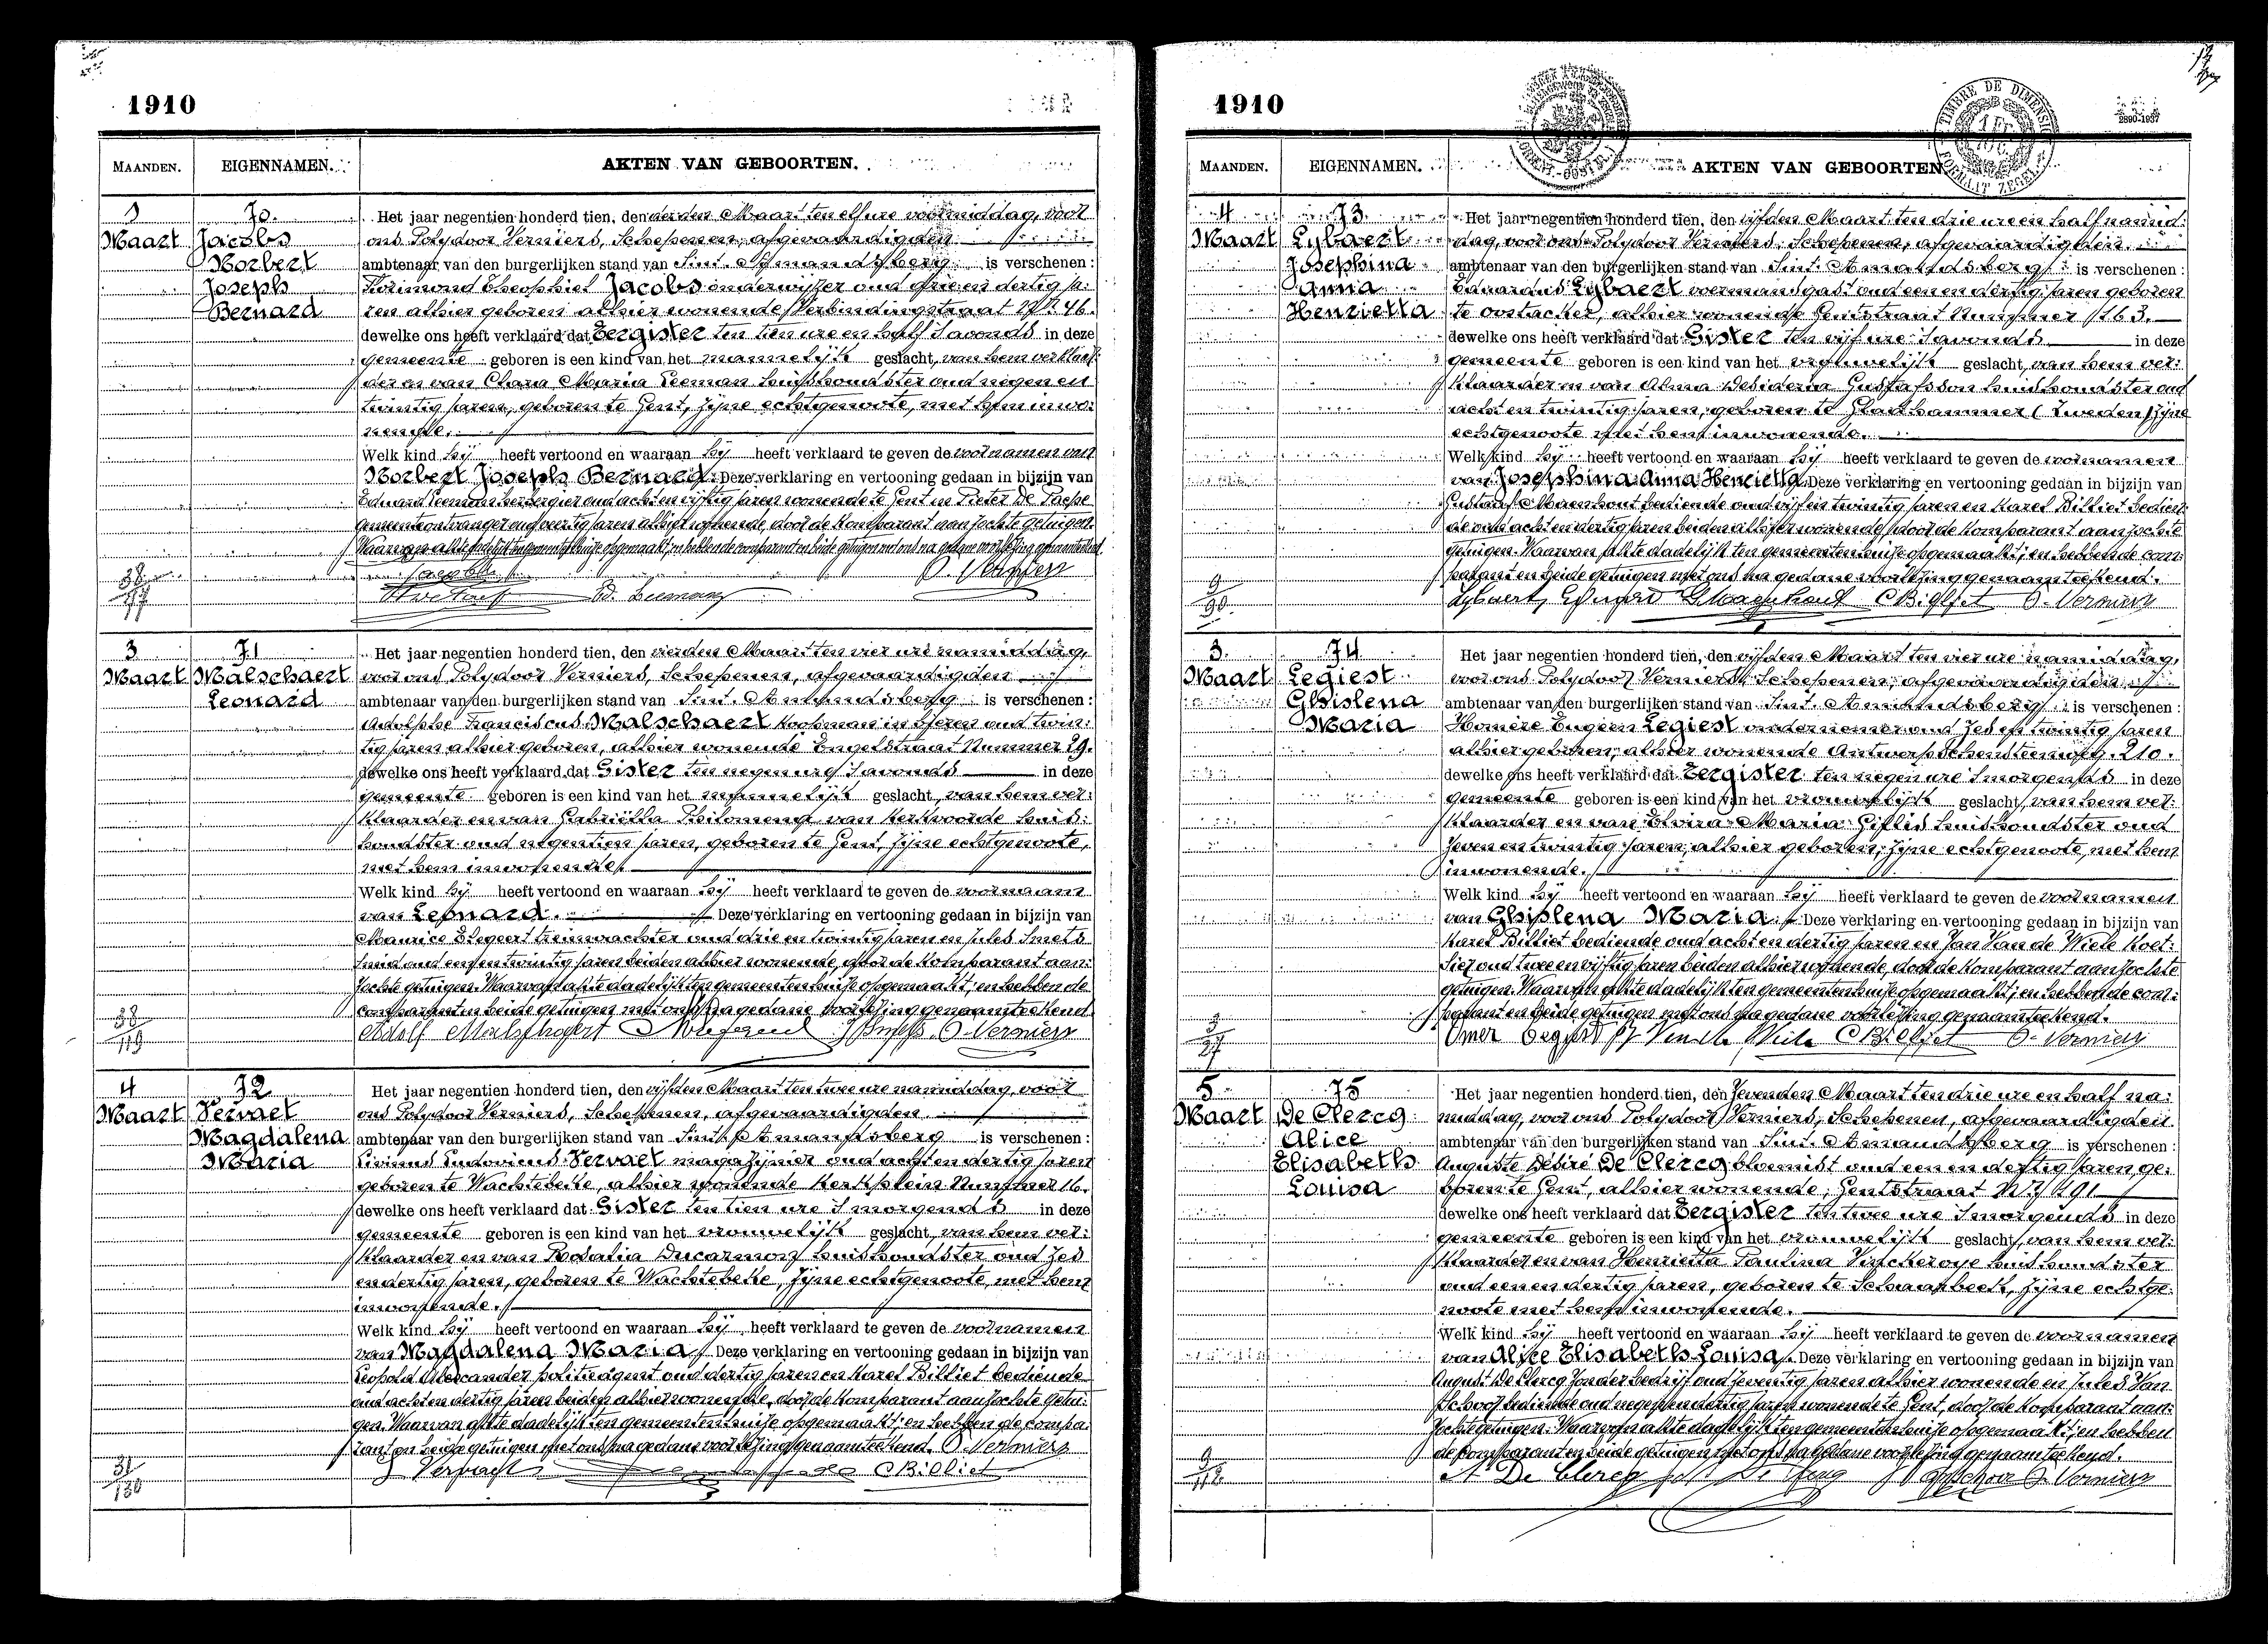 1910
MAANDEN. EIGENNAMEN. AKTEN VAN GEBOORTEN.
3 70.
Maart Jacobs
Norbert
Joseph
Bernard
Het jaar negentien honderd tien, den derden Maart ten elf ure voormiddag, voor
ons Polydoor Verniers, Schepenen, afgevaardigden
ambtenaar van den burgerlijken stand van Sint. Amandsberg is verschenen :
Theophiel Jacobs onderwijzer oud drie en dertig ja:
ren alhier geboren alhier wonende Verbindingstraat Nr. 46.
dewelke ons heeft verklaard dat Eergister ten tien ure en half s'avonds in deze
gemeente geboren is een kind van het mannelijk geslacht, van hem verklaar:
der en van Clara Maria Leeman huishoudster oud negen en
twintig jaren, geboren te Gent, zijne echtgenoote, met hem inwo:
nende.
Welk kind hij heeft vertoond en waaraan hij heeft verklaard te geven de voornamen van
Norbert Joseph Bernard. Deze verklaring en vertooning gedaan in bijzijn van
Eduard Leeman herbergier oud acht en vijftig jaren wonende te Gent en Pieter De Paepe
gemeenteontvanger oud veertig jaren alhier wonende, door de komparant aanzochte getuigen.
Waarvan akte dadelijk ten gemeentenhuize opgemaakt, en hebben de comparant en beide getuigen met ons na gedane voorlezing genaamteekend.
Jacobs P. Verniers
Ed. Leeman
3 71
Maart Malschaert
Leonard
Het jaar negentien honderd tien, den vierden Maart ten vier ure namiddag,
voor ons Polydoor Verniers, Schepenen, afgevaardigden
ambtenaar van den burgerlijken stand van Sint. Amandsberg is verschenen :
Adolphe Franciscus Malschaert koopman in oud twin:
tig jaren alhier geboren, alhier wonende Engelstraat Nummer 29.
dewelke ons heeft verklaard dat Gister ten negen ure s'avonds in deze
gemeente geboren is een kind van het mannelijk geslacht, van hem ver:
klaarder en van Gabriëlla Philomena van Kerkvoorde huis:
houdster oud negentien jaren, geboren te Gent, zijne echtgenoote,
met hem inwonende.
Welk kind hij heeft vertoond en waaraan hij heeft verklaard te geven de voornaam
van Leonard. Deze verklaring en vertooning gedaan in bijzijn van
Maurice treinwachter oud drie en twintig jaren en Jules Smets
smid oud een en twintig jaren beiden alhier wonende, door de komparant aan:
zochte getuigen. Waarvan akte dadelijk ten gemeentenhuize opgemaakt, en hebben de
comparant en beide getuigen met ons na gedane voorlezing genaamteekend
Adolf Malschaert J Smets P. Verniers
4 72
Maart Vervaet
Magdalena
Maria
Het jaar negentien honderd tien, den vijfden Maart ten twee ure namiddag, voor
ons Polydoor Verniers, Schepenen, afgevaardigden
ambtenaar van den burgerlijken stand van Sint. Amandsberg is verschenen :
Livinus Ludovicus Vervaet magazijnier oud acht en dertig jaren
geboren te Wachtebeke, alhier wonende Kerkplein Nummer 16.
dewelke ons heeft verklaard dat Gister ten tien ure s'morgends in deze
gemeente geboren is een kind van het vrouwelijk geslacht, van hem ver:
klaarder en van Rosalia Ducarmon huishoudster oud zes
en dertig jaren, geboren te Wachtebeke, zijne echtgenoote, met hem
inwonende.
Welk kind hij heeft vertoond en waaraan hij heeft verklaard te geven de voornamen
van Magdalena Maria. Deze verklaring en vertooning gedaan in bijzijn van
Leopold politieagent oud dertig jaren en Karel Billiet bediende
oud acht en dertig jaren beiden alhier wonende, door de komparant aanzochte getui:
gen. Waarvan akte dadelijk ten gemeentenhuize opgemaakt, en hebben de compa:
rant en beide getuigen met ons na gedane voorlezing genaamteekend. P. Verniers
Vervaet C Billiet
1910
MAANDEN. EIGENNAMEN. AKTEN VAN GEBOORTEN
TIMBRE DE DIMENSION
4 73.
Maart Lybaert
Josephina
Anna
Henrietta
Het jaar negentien honderd tien, den vijfden Maart ten drie ure en half namid:
dag, voor ons Polydoor Verniers, Schepenen, afgevaardigden
ambtenaar van den burgerlijken stand van Sint. Amandsberg is verschenen :
Eduardus Lybaert voermansgast oud een en dertig jaren geboren
te Oostacker, alhier wonende Gentstraat Nummer 163.
dewelke ons heeft verklaard dat Gister ten vijf ure s'avonds in deze
gemeente geboren is een kind van het vrouwelijk geslacht, van hem ver:
klaarder en van Alma Desideria Gustafsson huishoudster oud
acht en twintig jaren, geboren te Gladhammer (Zweden) zijne
echtgenoote met hem inwonende.
Welk kind hij heeft vertoond en waaraan hij heeft verklaard te geven de voornamen
van Josephina Anna Henrietta. Deze verklaring en vertooning gedaan in bijzijn van
Gustaaf Maenhout bediende oud vijf en twintig jaren en Karel Billiet bedien:
de oud acht en dertig jaren beiden alhier wonende, door de komparant aanzochte
getuigen. Waarvan akte dadelijk ten gemeentenhuize opgemaakt, en hebben de com:
parant en beide getuigen met ons na gedane voorlezing genaamteekend.
Lybaert, Eduard G Maenhout C Billiet P. Verniers
3. 74
Maart Legiest
Ghislena
Maria
Het jaar negentien honderd tien, den vijfden Maart ten vier ure namiddag,
voor ons Polydoor Verniers, Schepenen, afgevaardigden
ambtenaar van den burgerlijken stand van Sint. Amandsberg is verschenen :
Homère Eugeen Legiest ondernemer oud zes en twintig jaren
alhier geboren, alhier wonende Antwerpschensteenweg. 210.
dewelke ons heeft verklaard dat Eergister ten negen ure s'morgends in deze
gemeente geboren is een kind van het vrouwelijk geslacht, van hem ver:
klaarder en van Elvira Maria huishoudster oud
zeven en twintig jaren, alhier geboren, zijne echtgenoote, met hem
inwonende.
Welk kind hij heeft vertoond en waaraan hij heeft verklaard te geven de voornamen
van Ghislena Maria. Deze verklaring en vertooning gedaan in bijzijn van
Karel Billiet bediende oud acht en dertig jaren en Jan Van de Wiele koet:
sier oud twee en vijftig jaren beiden alhier wonende, door de komparant aanzochte
getuigen. Waarvan akte dadelijk ten gemeentenhuize opgemaakt, en hebben de com:
parant en beide getuigen met ons na gedane voorlezing genaamteekend.
Omer Legiest J Van de Wiele C Billiet P. Verniers
5 75
Maart De Clercq
Alice
Elisabeth
Louisa
Het jaar negentien honderd tien, den zevenden Maart ten drie ure en half na:
middag, voor ons Polydoor Verniers, Schepenen, afgevaardigden
ambtenaar van den burgerlijken stand van Sint. Amandsberg is verschenen :
Auguste Désiré De Clercq bloemist oud een en dertig jaren ge:
boren te Gent, alhier wonende, Gentstraat Nr. 191
dewelke ons heeft verklaard dat Eergister ten twee ure s'morgends in deze
gemeente geboren is een kind van het vrouwelijk geslacht, van hem ver:
klaarder en van Henrietta Paulina huishoudster
oud een en dertig jaren, geboren te Schaarbeek, zijne echtge:
noote met hem inwonende.
Welk kind hij heeft vertoond en waaraan hij heeft verklaard te geven de voornamen
van Alice Elisabeth Louisa. Deze verklaring en vertooning gedaan in bijzijn van
August De Clercq zonder bedrijf oud zeventig jaren alhier wonende en Jules Van
Schoor bediende oud negen en dertig jaren wonende te Gent, door de komparant aan:
zochte getuigen. Waarvan akte dadelijk ten gemeentenhuize opgemaakt, en hebben
de komparant en beide getuigen met ons na gedane voorlezing genaamteekend.
A De Clercq J Van Schoor P. Verniers